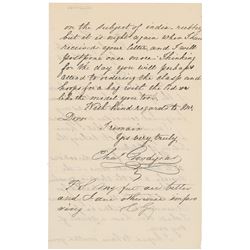 on the subject of india rubber
but it is night again when I have
received your letter, and I will
postpone once more: Thinking
for the day you will perhaps
attend to ordering the clasp and
for a bag with the
like the model you
With kind regards to Mr.
I remain
Yrs very truly,
Chas Goodyear
P.S. my are better
and I am otherwise impro
ving C. G.